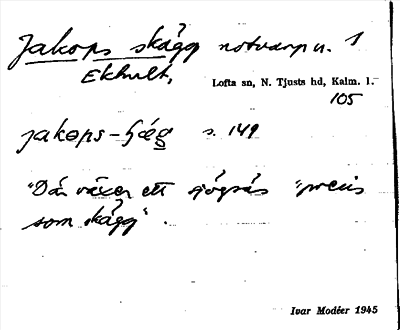 Jakops skägg notvarp u. 1
Ekhult,
Lofta sn, N. Tjusts hd, Kalm. l.
105
jakops-
s. 149
"Där växer ett sjögräs "precis
som skägg".
Ivar Modéer 1945